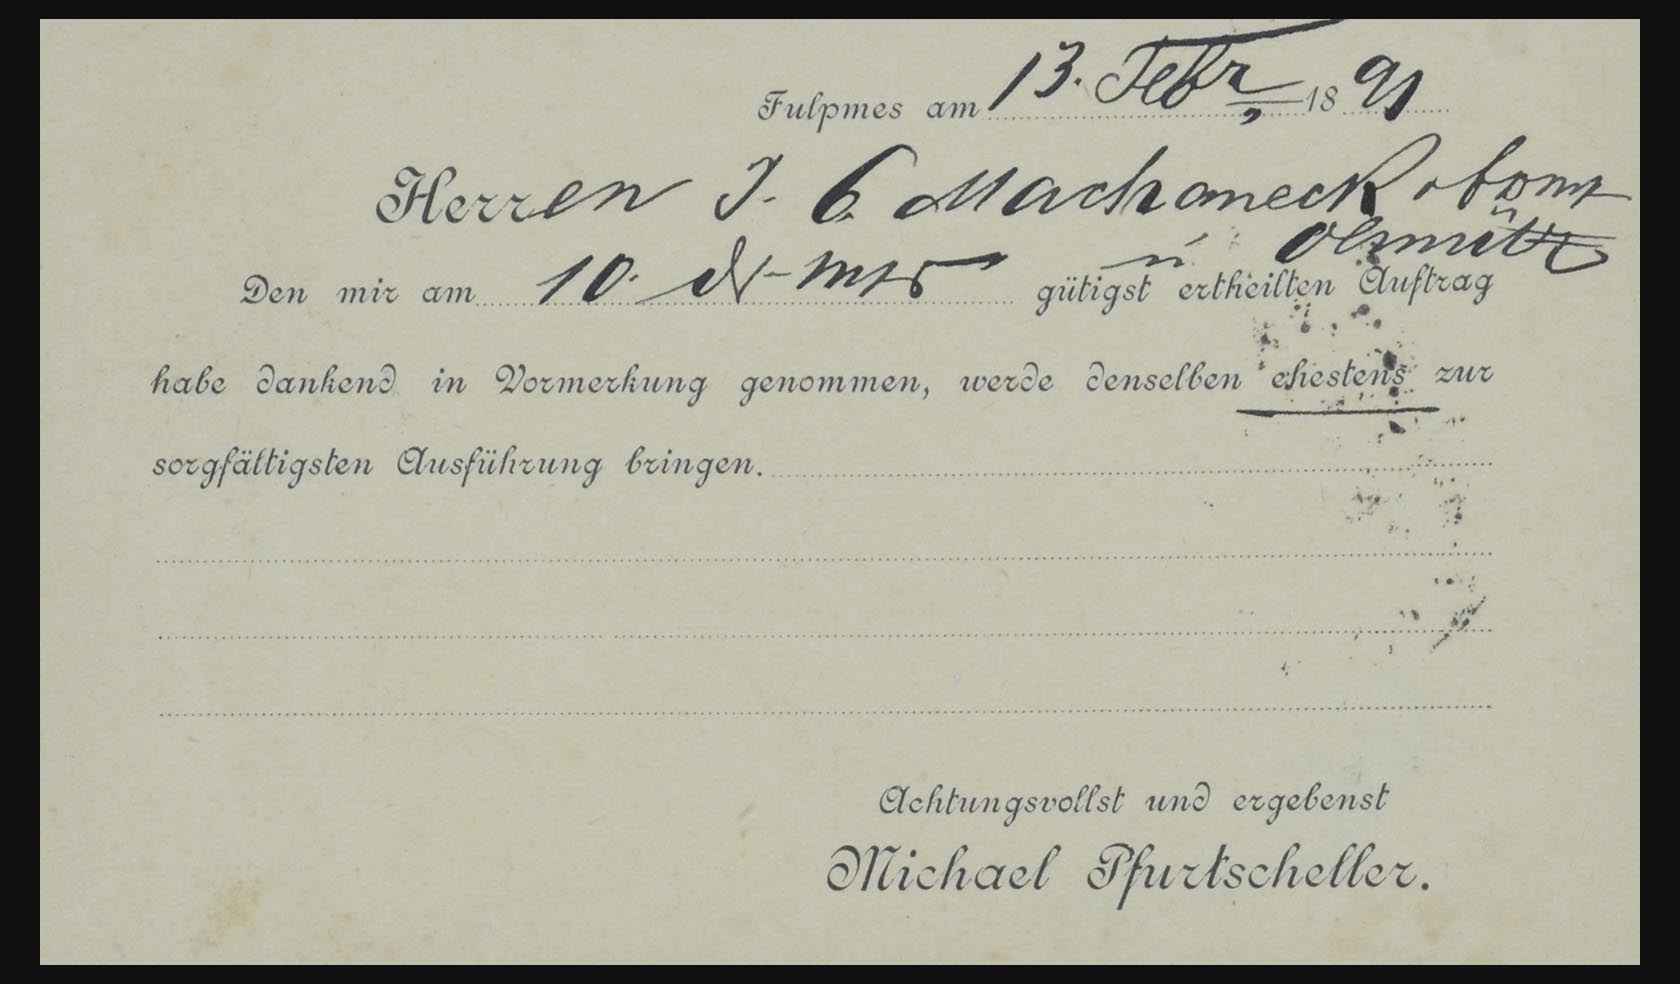 Fulpmes am 13. Febr 1891
Herren J. C. Machaneck & Comp
Olmütz
Den mir am 10. d. Mts gütigst ertheilten Auftrag
habe dankend in Vormerkung genommen, werde denselben ehestens zur
sorgfältigsten Ausführung bringen.
Achtungsvollst und ergebenst
Michael Pfurtscheller.